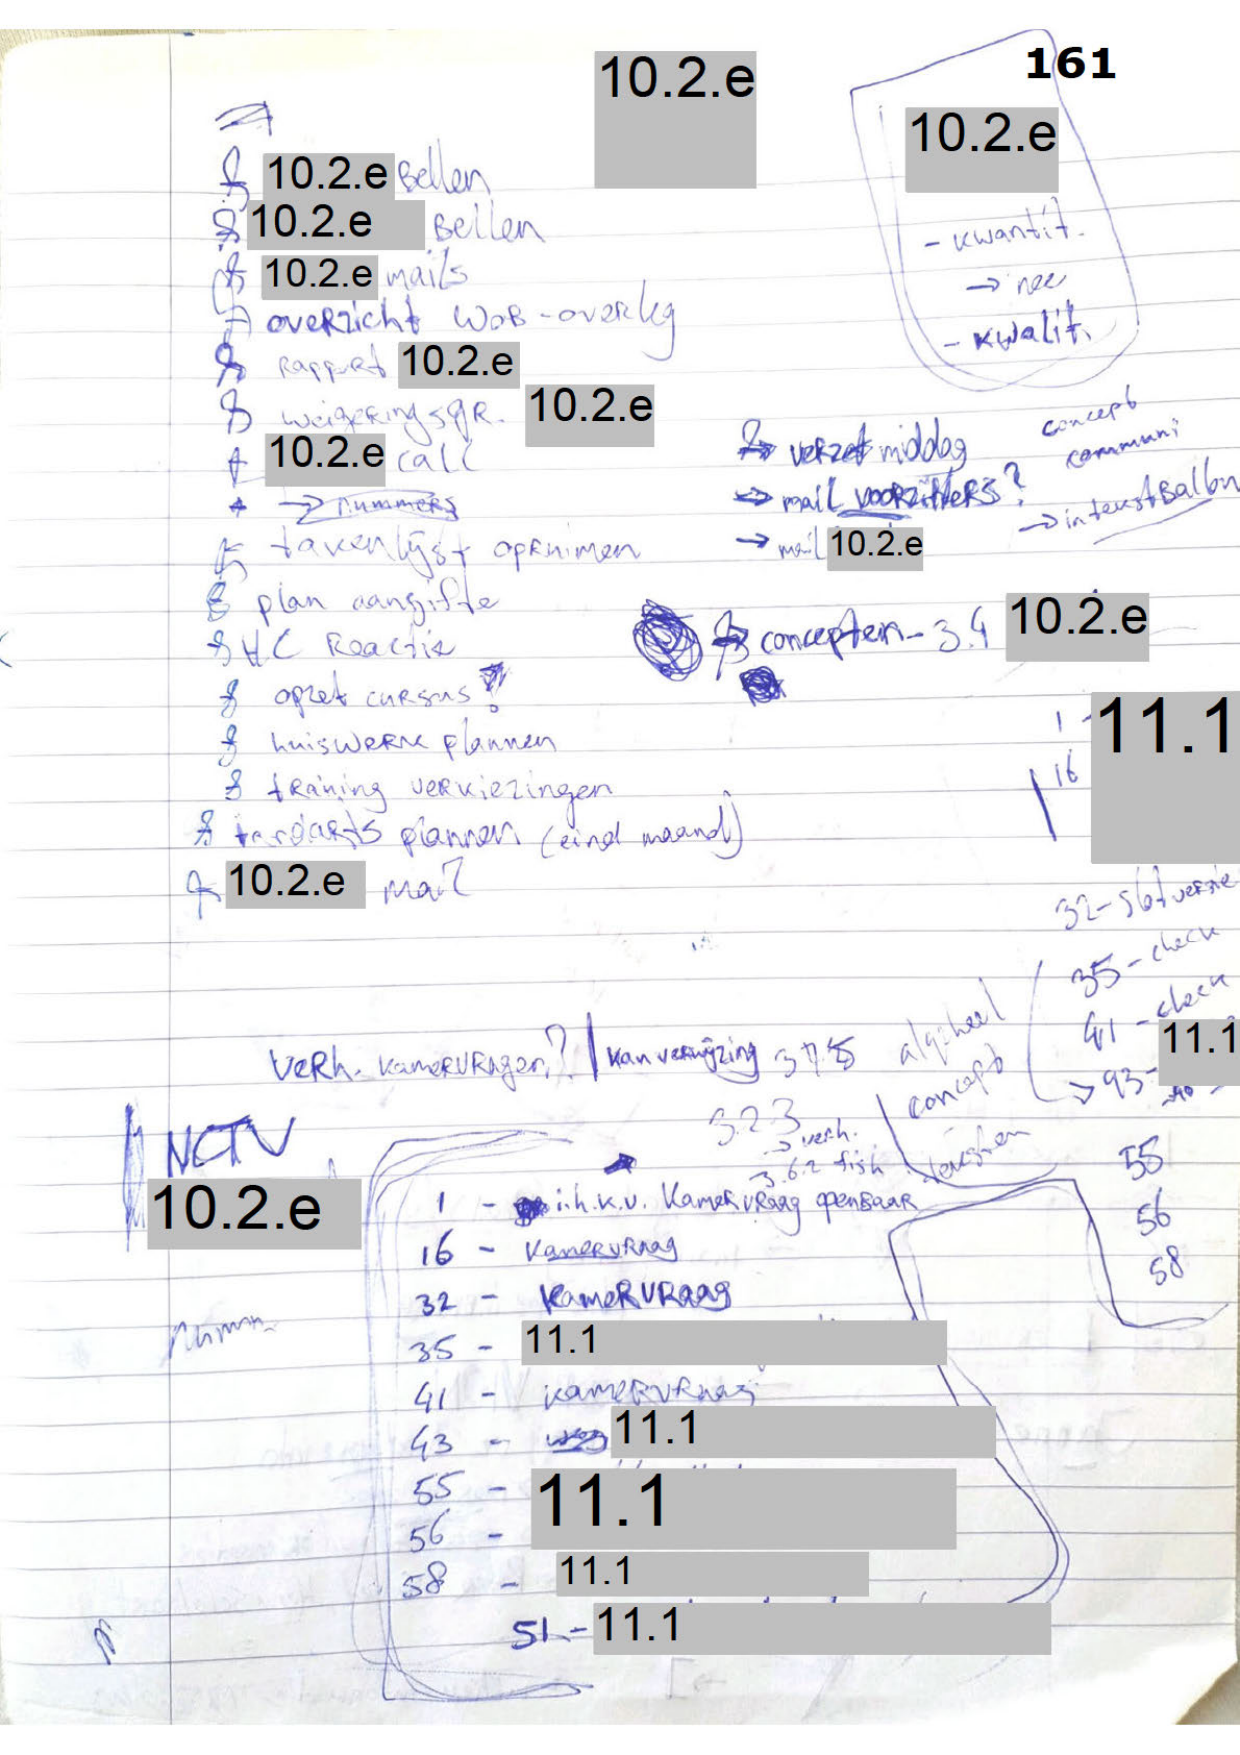 161
10.2.e
10.2.e
- kwantit.
→ nee
- kwalit.
10.2.e Bellen
10.2.e Bellen
10.2.e mails
overzicht WOB-overleg
Rapport 10.2.e
weigeringsgr. 10.2.e
10.2.e call
→ nummers
takenlijst opruimen
plan aangifte
H.C Reactie
opzet cursus?
huiswerk plannen
training verkiezingen
tandarts plannen (eind maand)
10.2.e mail
verzet middag
→ mail voorzitters?
→ mail 10.2.e
concept
communi
→
concepten - 3.4 10.2.e
1 - 11.1
16
32 - slotversie
35 - check
41 - check
11.1
→ 43 -
55
56
58
Verh. kamervragen? | kan verwijzing 3.7.5
concept
3.2.3
→ verh.
3.6.2 fish
NCTV
10.2.e
1 - i.h.k.v. Kamervraag openbaar
16 - Kamervraag
32 - Kamervraag
35 - 11.1
41 - kamervraag
43 - weg 11.1
55 - 11.1
56 -
58 - 11.1
51 - 11.1